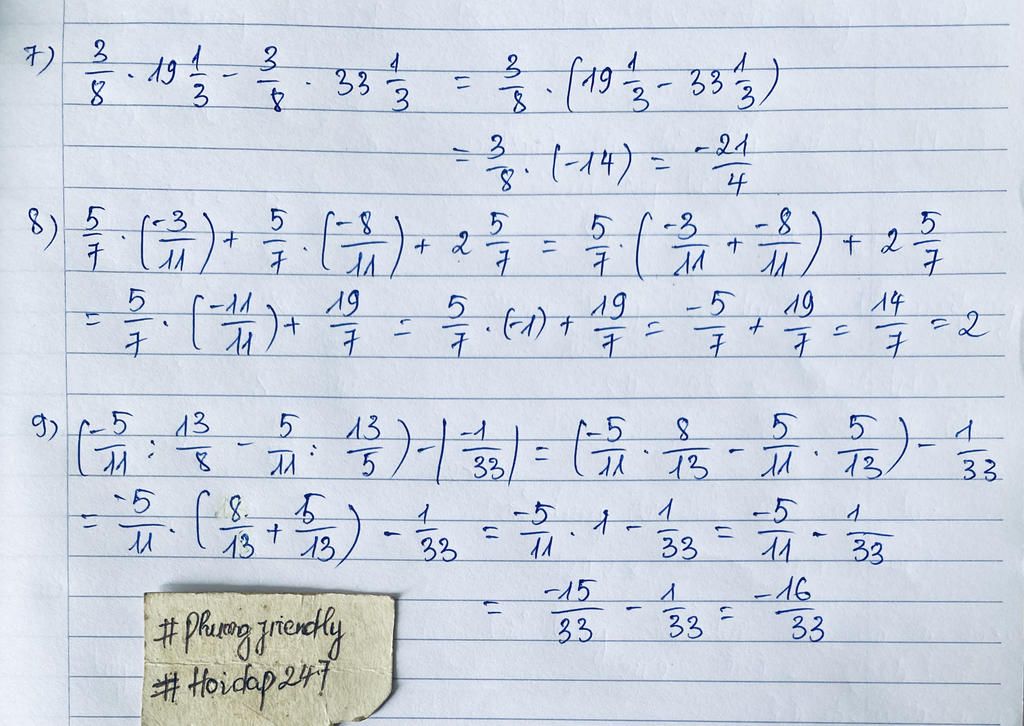 7) 3/8 . 19 1/3 - 3/8 . 33 1/3 = 3/8 . (19 1/3 - 33 1/3)
= 3/8 . (-14) = -21/4
8) 5/7 . (-3/11) + 5/7 . (-8/11) + 2 5/7 = 5/7 . (-3/11 + -8/11) + 2 5/7
= 5/7 . (-11/11) + 19/7 = 5/7 . (-1) + 19/7 = -5/7 + 19/7 = 14/7 = 2
9) (-5/11 : 13/8 - 5/11 : 13/5) - |-1/33| = (-5/11 . 8/13 - 5/11 . 5/13) - 1/33
= -5/11 . (8/13 + 5/13) - 1/33 = -5/11 . 1 - 1/33 = -5/11 - 1/33
= -15/33 - 1/33 = -16/33
# Phuong friendly
# Hoidap247